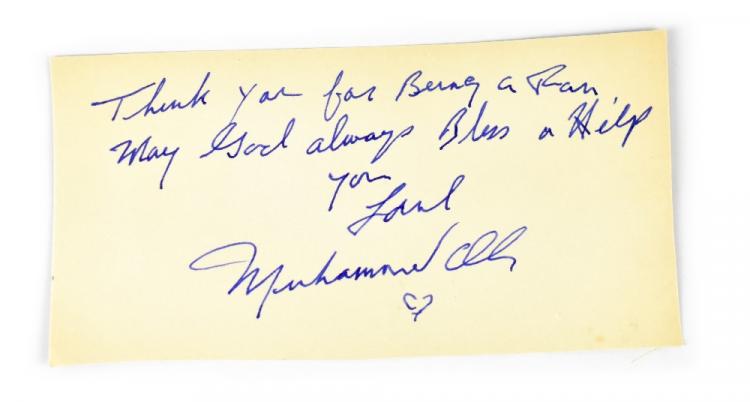 Thank you for Being a Fan
May God always Bless a Help
you
Love
Muhammad Ali